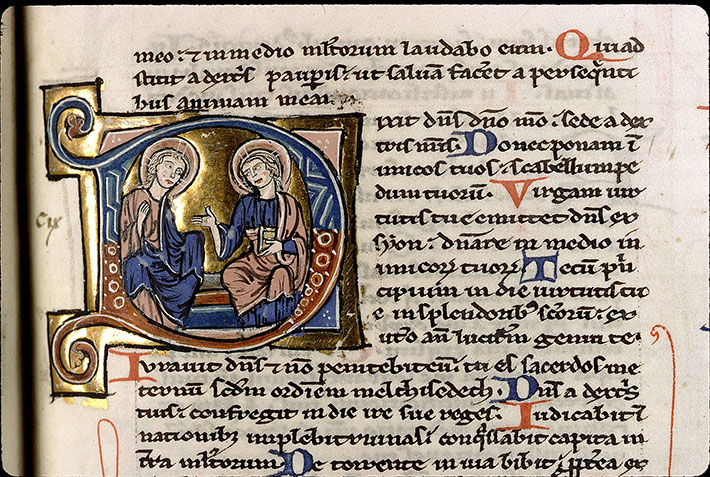 meo: ⁊ in medio ml̅torum laudabo eum. Qui ad
stitit a dext̅s paup̅is: ut saluā fac̅et a perseq̅nti
bus animam meā.
Dixit dn̅s dn̅o mō: sede a dex
tris m̅is. Donec ponam ī
imicos tuos: scabellum pe
dum tuorū. Virgam uir
cix
tutis tue emittet dn̅s ex
syon: dn̅are in medio in
imicor̅ tuor̅. Tecū p̅n
cipiū in die uirtutis tu
e in splendorib; sc̅orū: ex
ut̅o an̅ lucif̅m genui te.
Iurauit dn̅s ⁊ nō penitebit eū: tu es sacerdos in e
ternū sc̅dm ordiēm melchisedech. Dn̅s a dext̅s
tuis: confregit in die ire sue reges. Iudicabit ī
nationib; implebit ruinas: conq̅ssabit capita in
t̅ra ml̅torum. De torrente in uia bibit: p̅pt̅ea ex